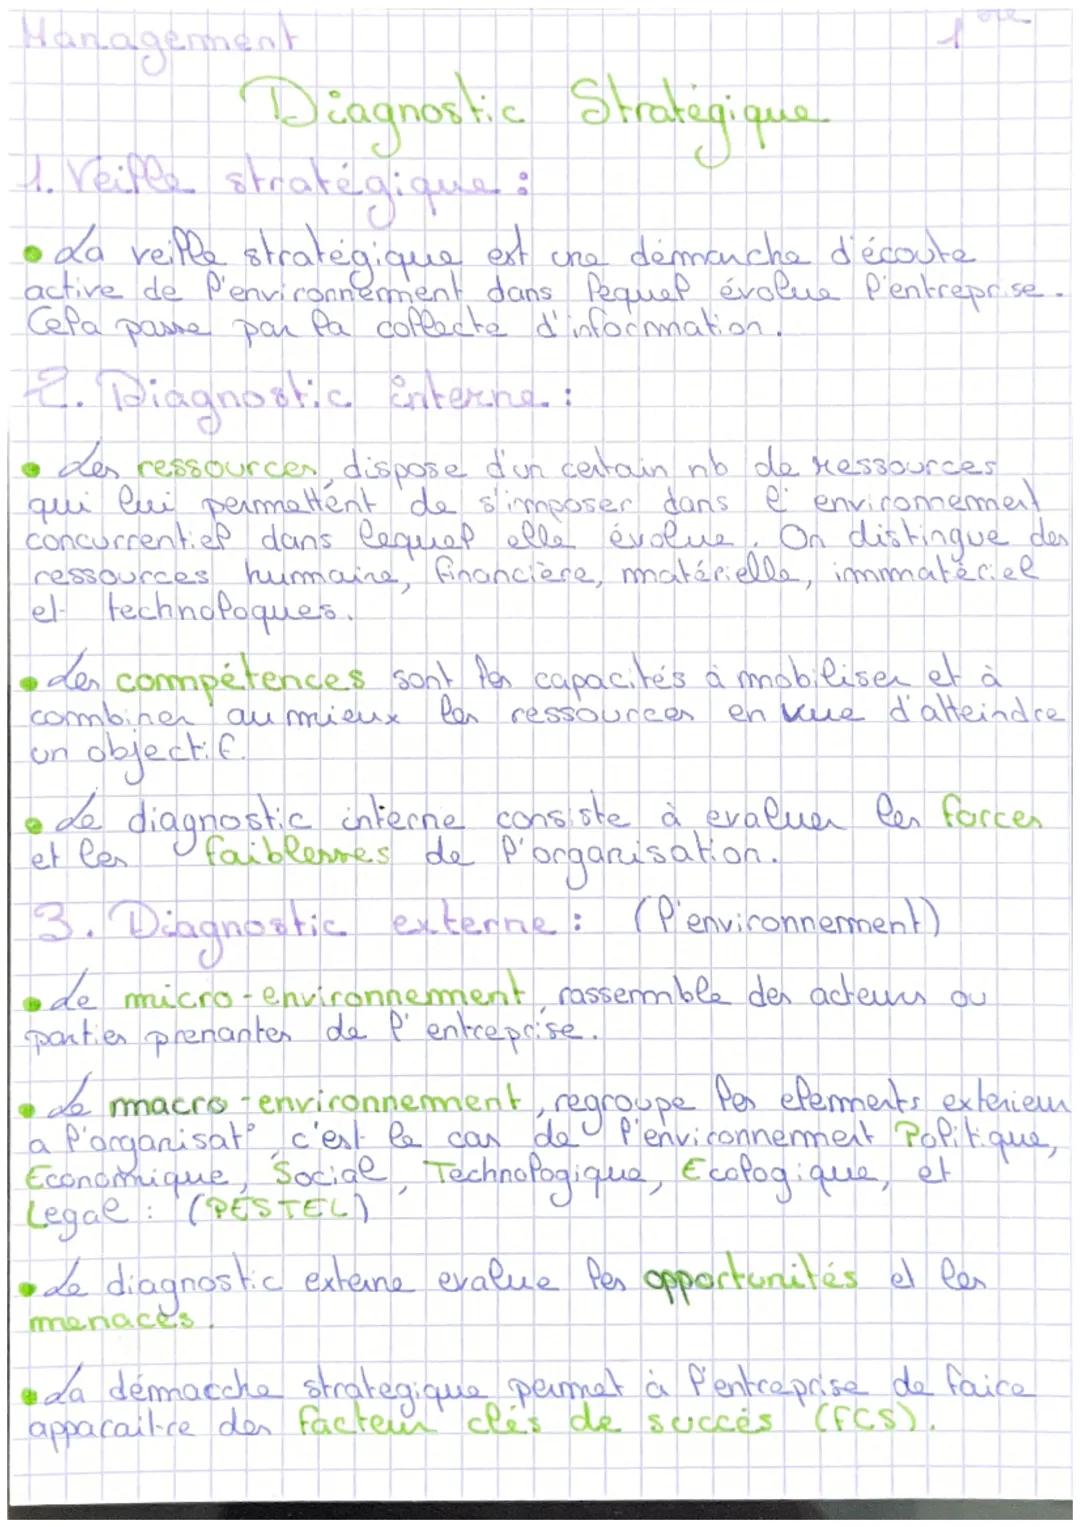 Management 1ère
Diagnostic Stratégique
1. Veille stratégique :
• La veille stratégique est une démarche d'écoute
active de l'environnement dans lequel évolue l'entreprise.
Cela passe par la collecte d'information.
2. Diagnostic interne :
• Les ressources, dispose d'un certain nb de ressources
qui lui permettent de s'imposer dans l'environnement
concurrentiel dans lequel elle évolue. On distingue des
ressources humaine, financière, matérielle, immatériel
et technologiques.
• Les compétences sont les capacités à mobiliser et à
combiner au mieux les ressources en vue d'atteindre
un objectif.
• Le diagnostic interne consiste à evaluer les forces
et les faiblesses de l'organisation.
3. Diagnostic externe : (l'environnement)
• Le micro-environnement, rassemble des acteurs ou
parties prenantes de l'entreprise.
• Le macro-environnement, regroupe les elements exterieur
a l'organisat° c'est le cas de l'environnement Politique,
Economique, Social, Technologique, Ecologique, et
Legal : (PESTEL)
• Le diagnostic externe evalue les opportunités et les
menaces.
• La démarche strategique permet à l'entreprise de faire
apparaitre des facteur clés de succès (FCS).